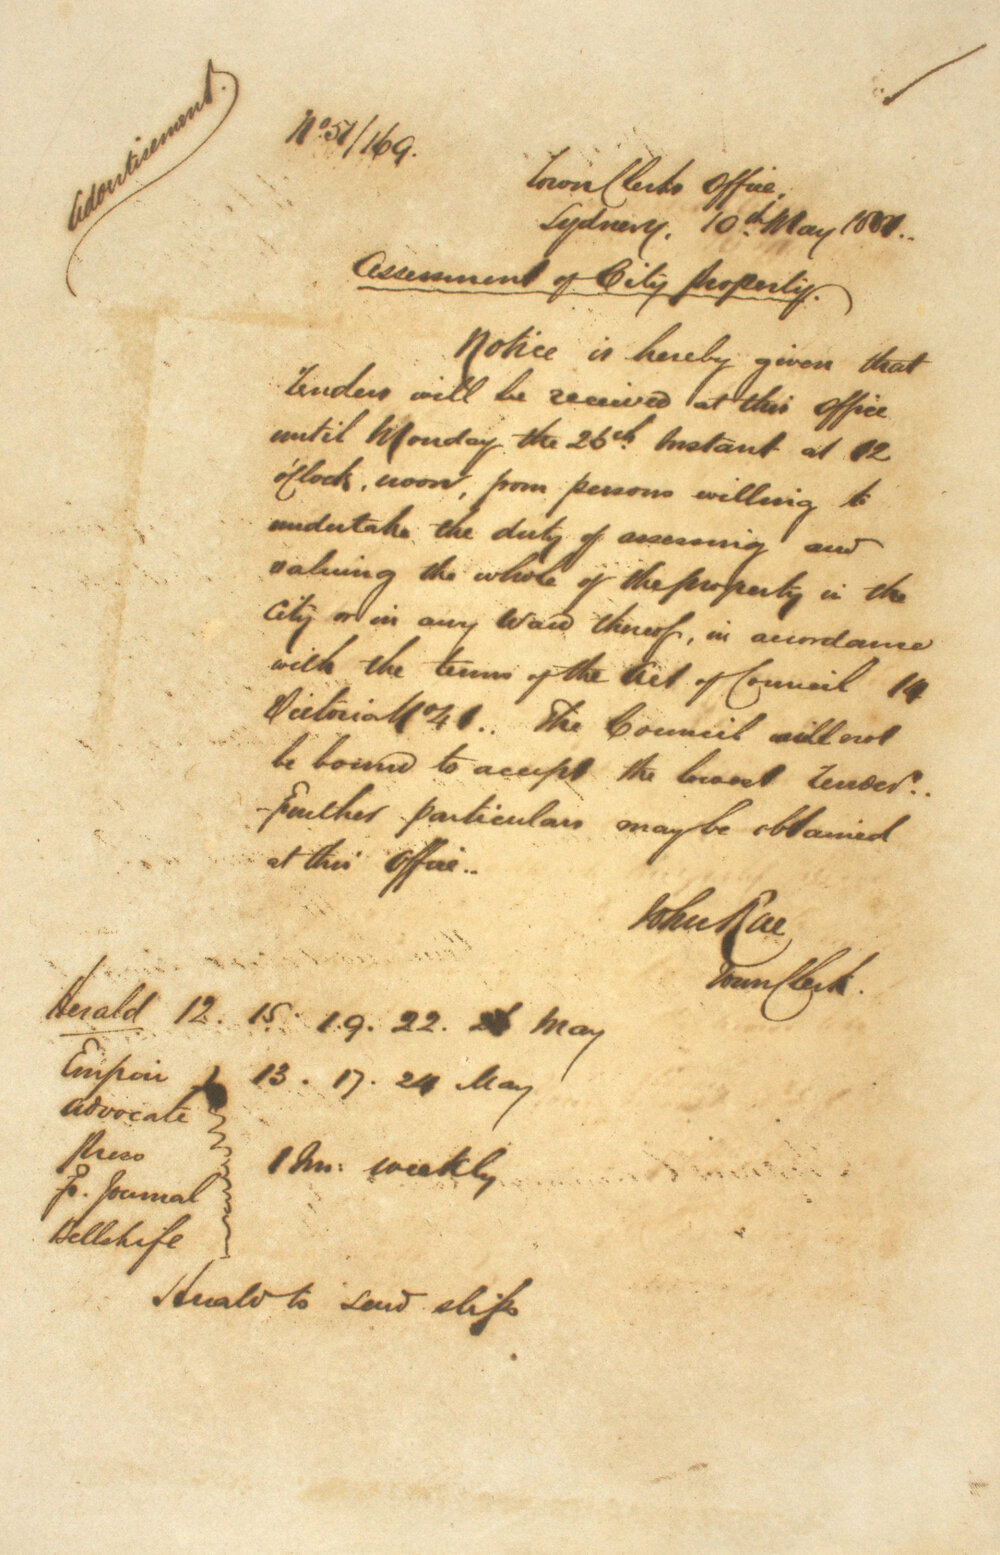 Advertisement.
No. 51/169.
Town Clerks Office,
Sydney, 10th May 1851..
Assessment of City Property.
Notice is hereby given that
Tenders will be received at this Office
until Monday the 26th Instant at 12
o'Clock, noon, from persons willing to
undertake the duty of assessing and
valuing the whole of the property in the
City or in any Ward thereof, in accordance
with the terms of the Act of Council 14
Victoria No 41.. The Council will not
be bound to accept the lowest Tender..
Further particulars may be obtained
at this Office..
John Rae
Town Clerk.
Herald 12. 15. 19. 22. 26 May
Empire 13. 17. 24 May
Advocate
Press 1 In: weekly
F. Journal
Bells Life
Herald to send slips